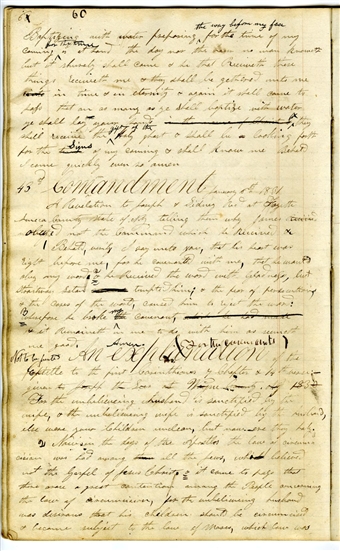 60
the way before my face
Baptising with water preparing for the time of my
coming for the time is at hand the day nor the hour no man knoweth
but it surely shall come & he that Receiveth these
things receiveth me & they shall be gethered unto me
in time & in eternity & again it shall come to
pass that on as many as ye shall baptise with water
ye shall lay your hands &
shall receive the gift of the holy ghost & shall be looking forth
for the Signs of my coming & shall know me Behold
I come quickly even so amen
43rd Commandment January 1831
A Revelation to Joseph & Sidney at Fayette
Seneca County State of N.Y. telling them why James
obeyed not the commandment which he received
1 Behold verily I say unto you, that his heart was
right before me, for he covenanted with me, that he would
obey my word & he Received the word with gladness, but
Straitway Satan tempted him; & the fear of persecution
& the Cares of the world, caused him to reject the word;
3 wherefore he broke the Covenant,
& it Remaineth in me to do with him as seemeth
me good. Amen.
Not to be printed An explanation of the
Epistle to the first Corinthians 7 Chapter & 14 Verse
given to Joseph the Seer
For the unbelieveing husband is sanctified by the
wife, & the unbelieveing wife is sanctified by the husband,
else were your Children unclean, but now are they holy.
2 Now in the days of the apostles the law of circumci
cision was had among all the jews, who believed
not the Gospel of Jesus Christ, & it came to pass that
there arose a great contention among the People concerning
the law of circumcision, for the unbelieveing husband
was desirous that his children should be circumcised
& become subject to the law of Moses, which law was